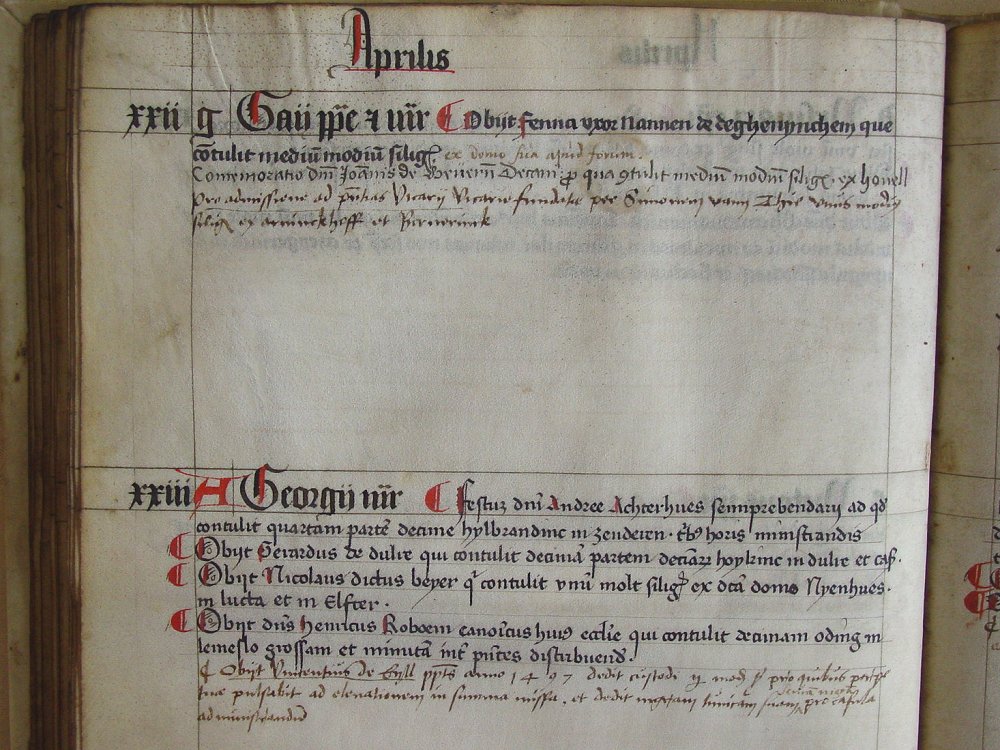 Aprilis
xxii g Gaii ppe et mr Obijt Fenna uxor Nannen de deghenynchem que
cōtulit mediū modiū silig ex domo sua apud forum.
Comemoratio dnī Joānis de Decani pro qua 9tulit mediū modiū silig ex hovell
pro admissione ad pntias Vicarij Vicarie fundate per Simonem vam Thie unūs modiū
silig ex arninckhoff et
xxiii A Georgij mr Festuz dnī Andree Achterhues semiprebendarij ad qd
contulit quartam partē decime hylbrandinc in zenderen. horis ministrandis
Obijt Gerardus de dulre qui contulit decimā partem deciarz hoykinc in dulre et cas.
Obijt Nicolaus dictus beyer q contulit vnū molt silig ex dcā domo Nyenhues.
in lucta et in Elfter.
Obijt dns Henricus Roboem canoīcus hui9 ecclie qui contulit decimam oding in
lemeslo grossam et minutā int pntes distribuend.
Obijt Vincentius de Eyll ppts anno 1497 dedit custodi ij mod s pro quibus
pulsabit ad elevationem in summa missa, et dedit tunicam suam pro
administrandū